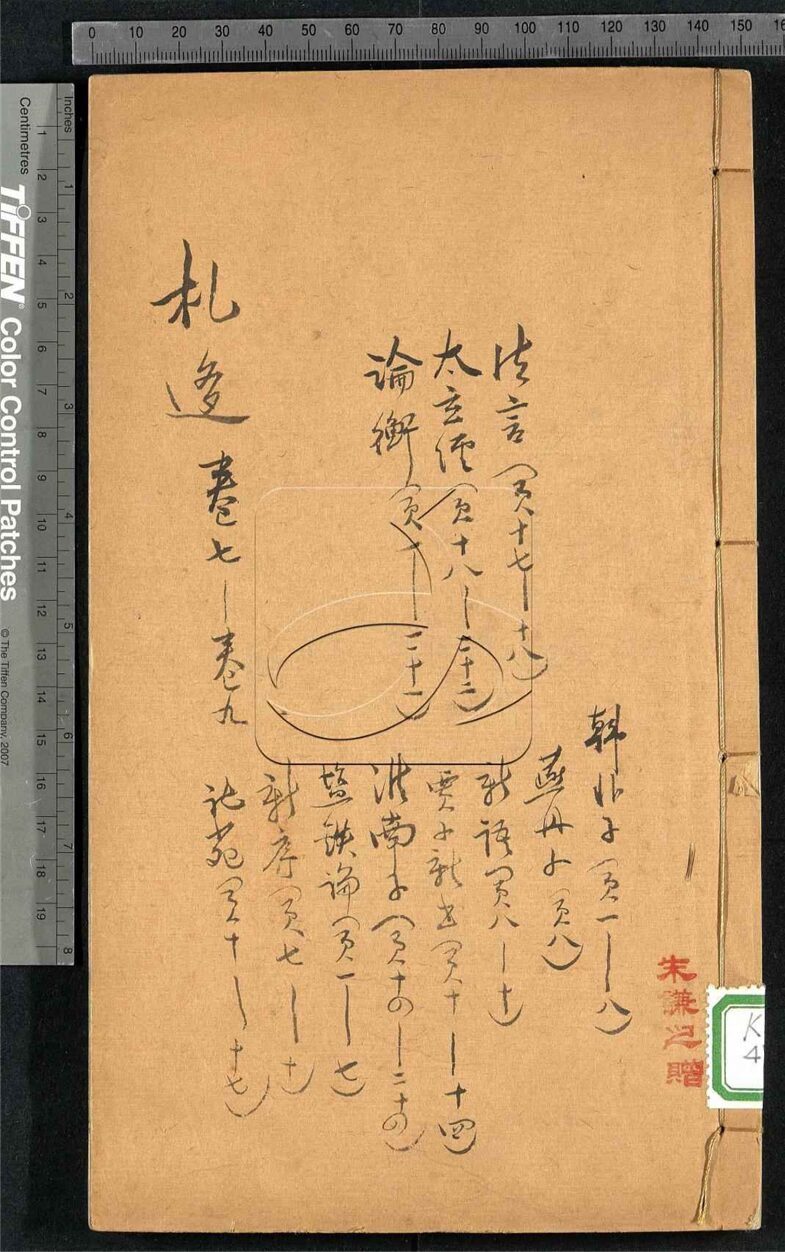 0 10 20 30 40 50 60 70 80 90 100 110 120 130 140 150
inches
Centimetres
TIFFEN® Color Control Patches
© The Tiffen Company, 2007
1 2 3 4 5 6 7 8 9 10 11 12 13 14 15 16 17 18 19
1 2 3 4 5 6 7 8
韓非子（頁一—八）
燕丹子（頁八）
新語（頁八—十）
賈子新書（頁十—十四）
淮南子（頁十四—二十四）
鹽鐵論（頁一—七）
新序（頁七—十）
説苑（頁十—十七）
法言（頁十七—十八）
太玄經（頁十八—二十二）
論衡（頁
札迻 卷七—卷九
朱謙之贈
K
4